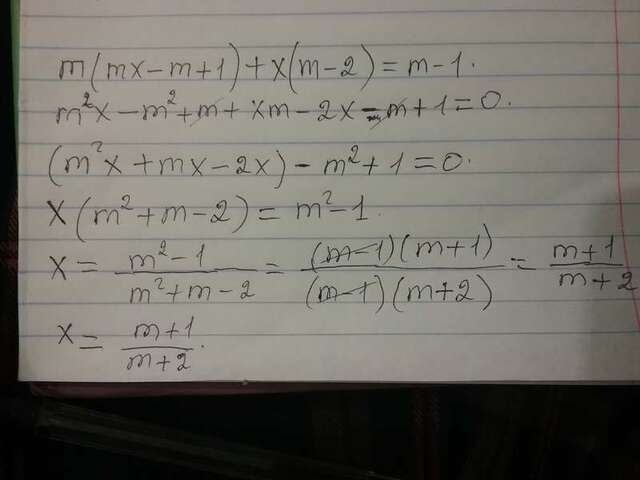 m(mx-m+1)+x(m-2)=m-1.
m²x-m²+m+xm-2x-m+1=0.
(m²x+mx-2x)-m²+1=0.
x(m²+m-2)=m²-1.
x= (m²-1)/(m²+m-2) = ((m-1)(m+1))/((m-1)(m+2)) = (m+1)/(m+2)
x= (m+1)/(m+2).